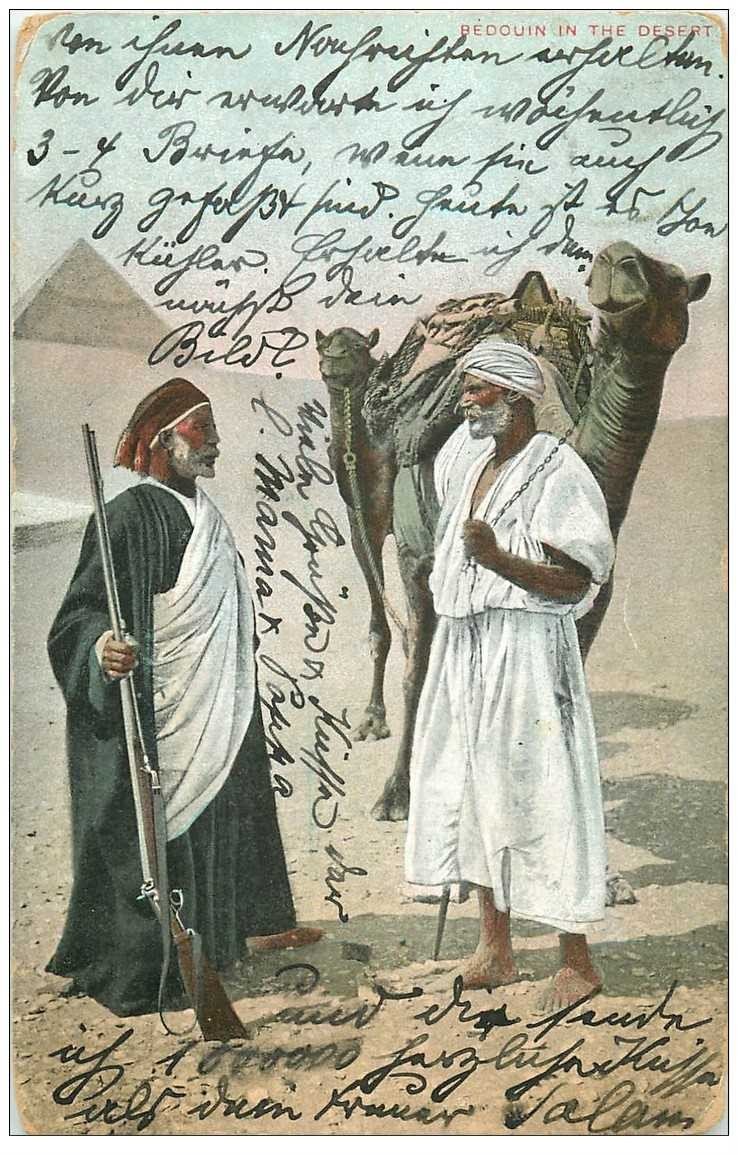 BEDOUIN IN THE DESERT
von ihnen Nachrichten erhalten.
Von dir erwarte ich wöchentlich
3-4 Briefe, wenn sie auch
kurz gefaßt sind. Heute ist es
kühler. Erhalte ich dem-
nächst dein
Bild?
Viele Grüße & Küsse der
l. Mama & Papa
und dir sende
ich 1000000 herzliche Küsse
als dein treuer